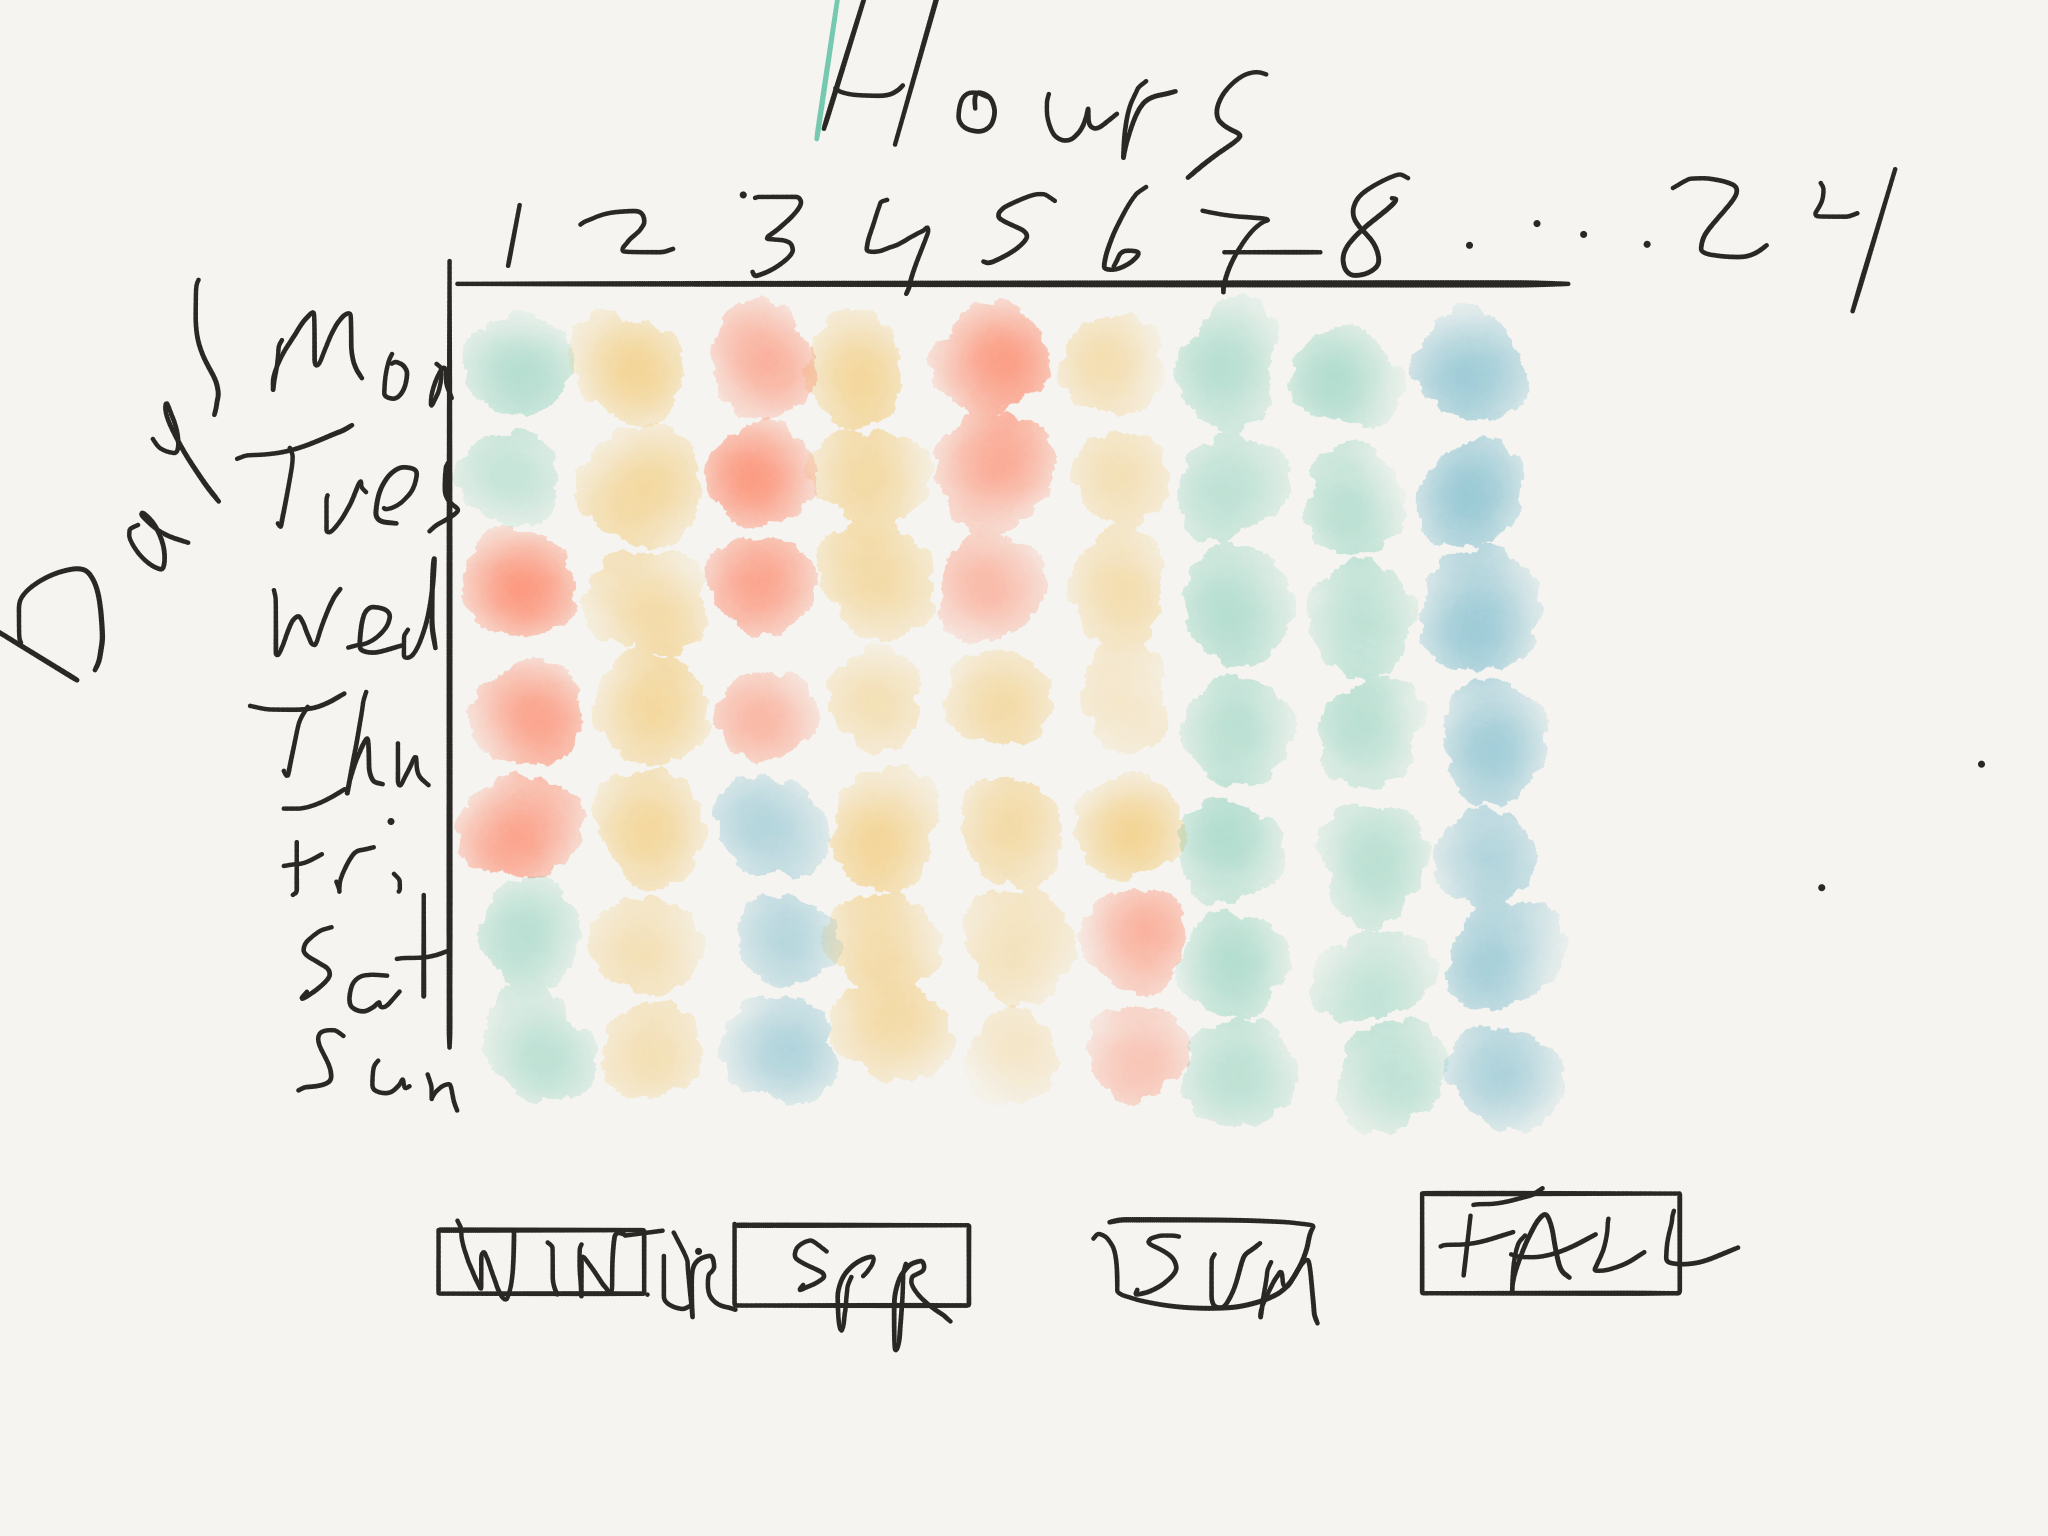 Hours
1 2 3 4 5 6 7 8 .... 24
Days
Mon
Tues
Wed
Thu
Fri
Sat
Sun
WINTUR Spr Sum FALL